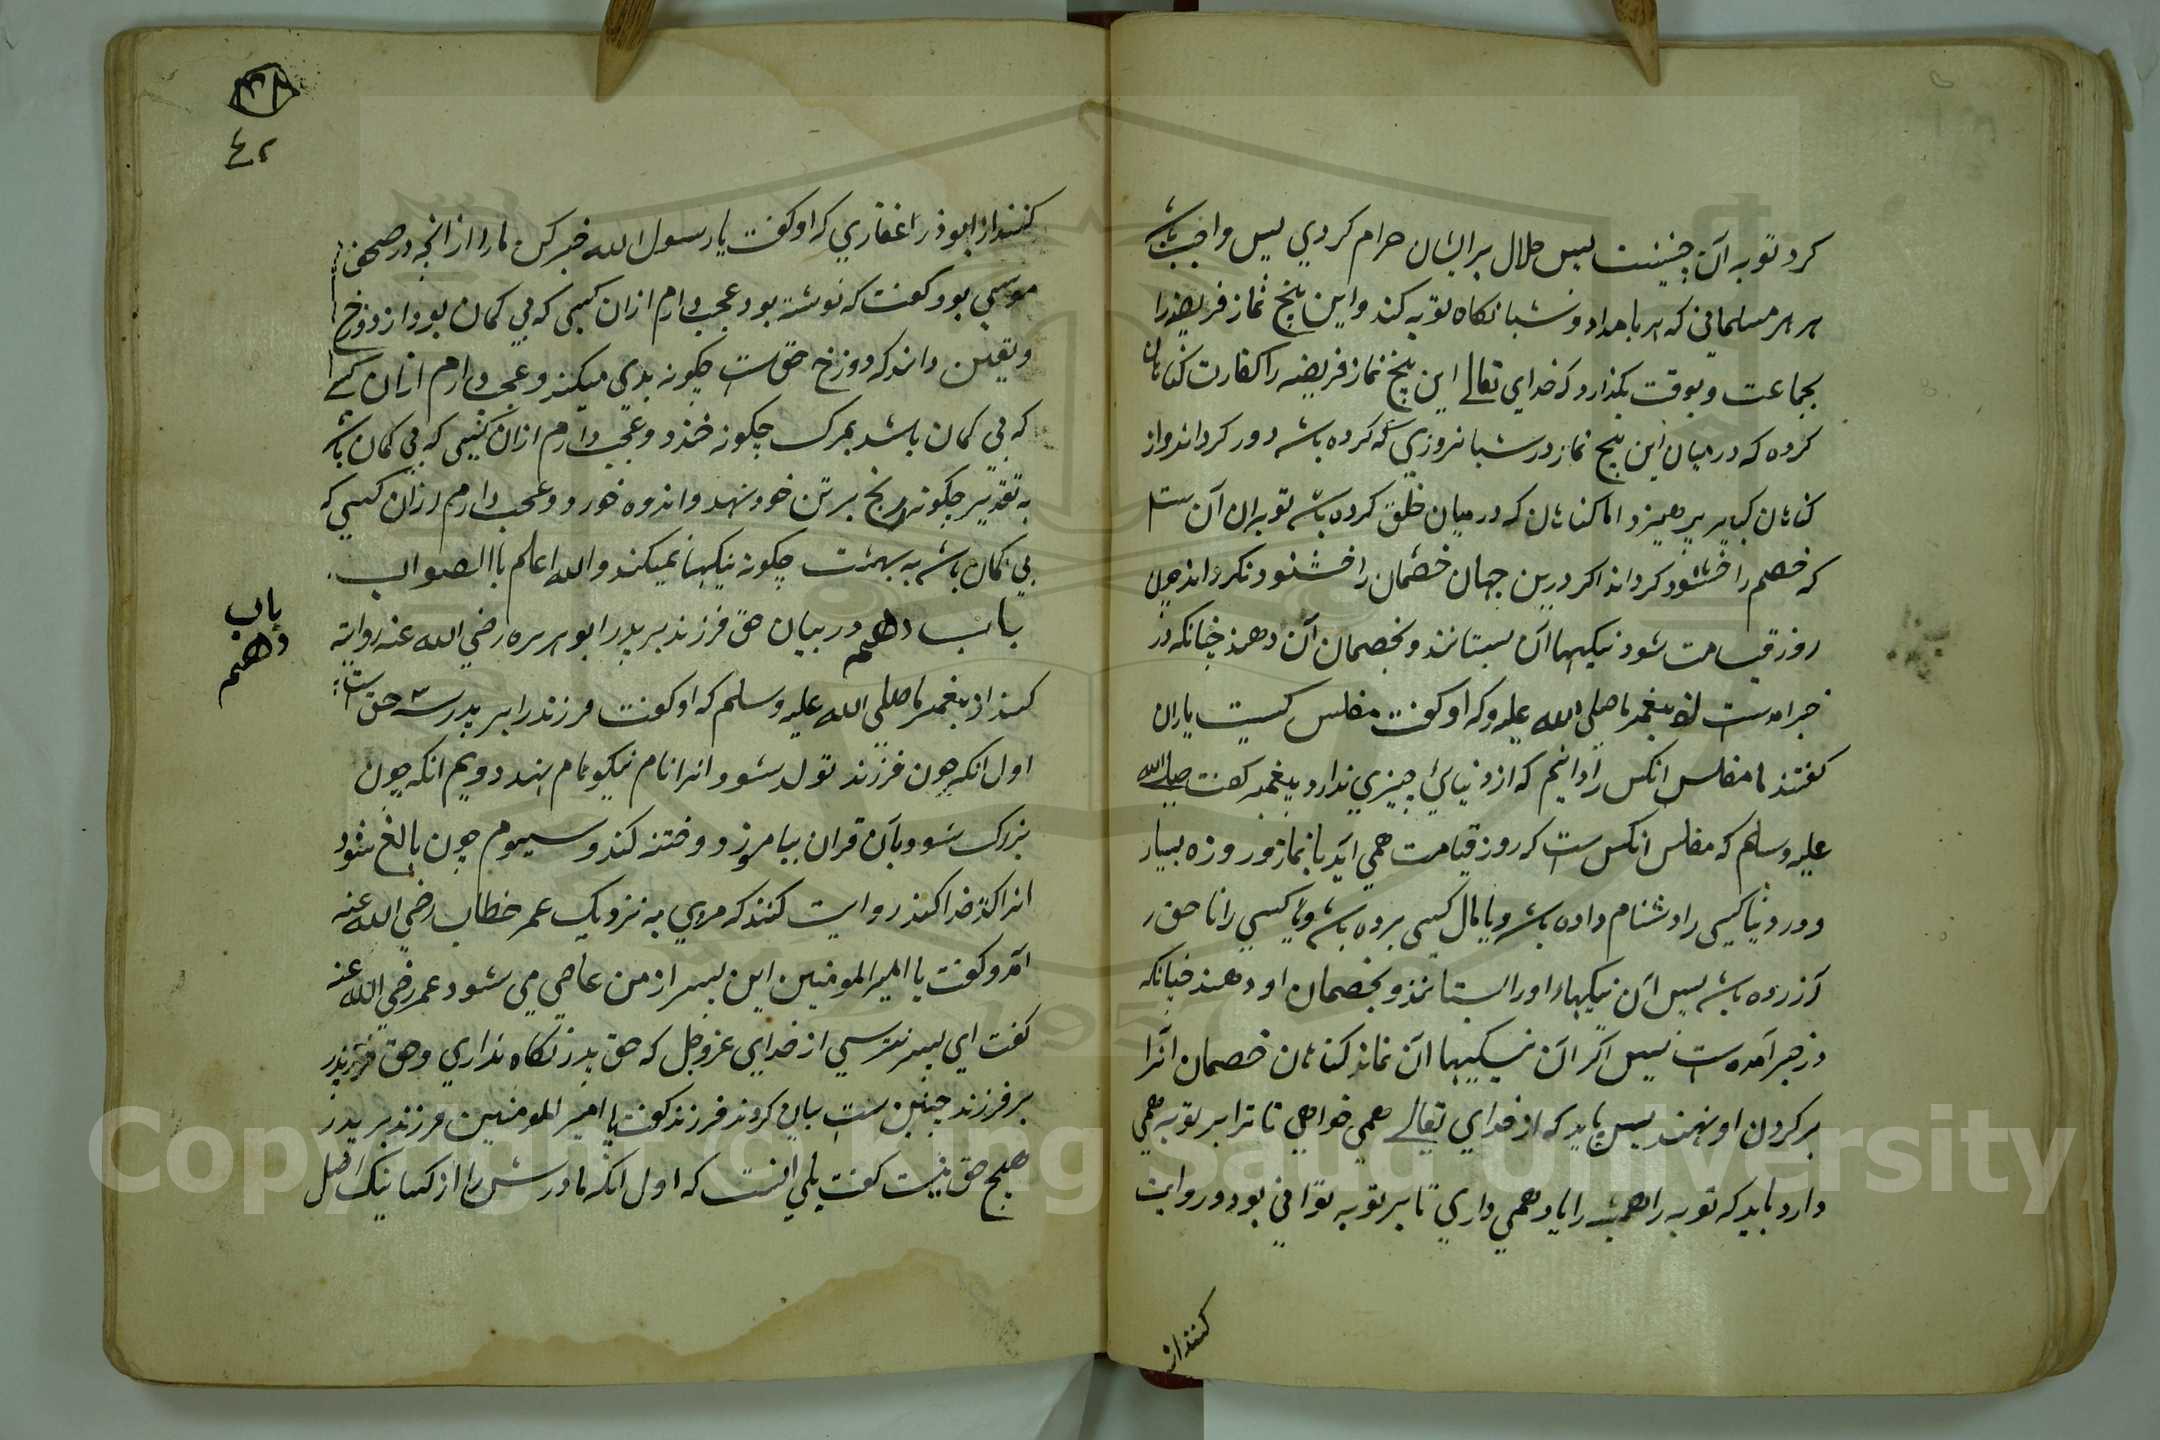 کرد توبه آن چنینست پس حلال بر ایشان حرام کردی پس واجب باشد
هر هر مسلمانی که هر بامداد و شبانکاه توبه کند و این پنج نماز فریضه را
بجماعت و بوقت بکذارد که خدای تعالی این پنج نماز فریضه را کفارت کناهان
کرده که در میان این پنج نماز در شبانروزی که کرده باشد دور کرداند و از
کناهان کبایر پرهیزد اما کناهان که در میان خلق کرده باشد توبه ان آن ست
که خصم را خشنود کرداند اکر درین جهان خصمان را خشنود نکرداند چون
روز قیامت شود نیکیهاء آن بستانند و بخصمان آن دهند چنانکه در
خبر امدست از پیغمبر ما صلی الله علیه و که او کفت مفلس کیست یاران
کفتند ما مفلس انکس را دانیم که از دنیائی چیزی ندارد پیغمبر کفت صلی الله
علیه وسلم که مفلس انکس ست که روز قیامت همی اید با نماز و روزه بسیار
و در دنیا کسی را دشنام داده باشد و یا مال کسی برده باشد و یا کسی را ناحق
آزرده باشد پس آن نیکیهاء او را بستانند و بخصمان او دهند چنانکه
در خبر آمده ست پس اکر آن نیکیها آن نماند کناهان خصمان انرا
بر کردن او نهند پس باید که از خدای تعالی همی خواهی تا ترا بر توبه همی
دارد باید که توبه را همیشه را یاد همی داری تا بر توبه توافی بود و روایت
کنند از
۳۸
٤٢
کنند از ابوذر غفاری که او کفت یا رسول الله خبر کن ما را از انچه در صحف
موسی بود کفت که نوشته بود عجب دارم از ان کسی که بی کمان بود از دوزخ
و یقین داند که دوزخ حق ست چکونه بدی میکند و عجب دارم از ان کسی
که بی کمان باشد بمرک چکونه خندد و عجب دارم از ان کسی که بی کمان باشد
به تقدیر چکونه رنج بر تن خود نهد و اندوه خورد و عجب دارم از ان کسی که
بی کمان باشد به بهشت چکونه نیکیها نمیکند والله اعلم باالصواب
باب دهم در بیان حق فرزند بر پدر ابو هریره رضی الله عنه روایت
باب دهم
کند از پیغمبر ما صلی الله علیه وسلم که او کفت فرزند را بر پدر سه حق ست
اول انکه چون فرزند تولد شود انرا نام نیکو نام نهد دویم انکه چون
بزرک شود بآن قران بیاموزد و ختنه کند و سیوم چون بالغ شود
انرا کدخدا کند روایت کنند که مردی به نزدیک عمر خطاب رضی الله عنه
آمد و کفت یا امیر المومنین این پسر از من عاصی می شود عمر رضی الله عنه
کفت ای پسر نترسی از خدای عزوجل که حق پدر نکاه نداری و حق پدر
بر فرزند چنین ست بیان کردند فرزند کفت یا امیر المومنین فرزند بر پدر
هیچ حق نیست کفت بلی انست که اول انکه مادرش را از کسا نیک اصل